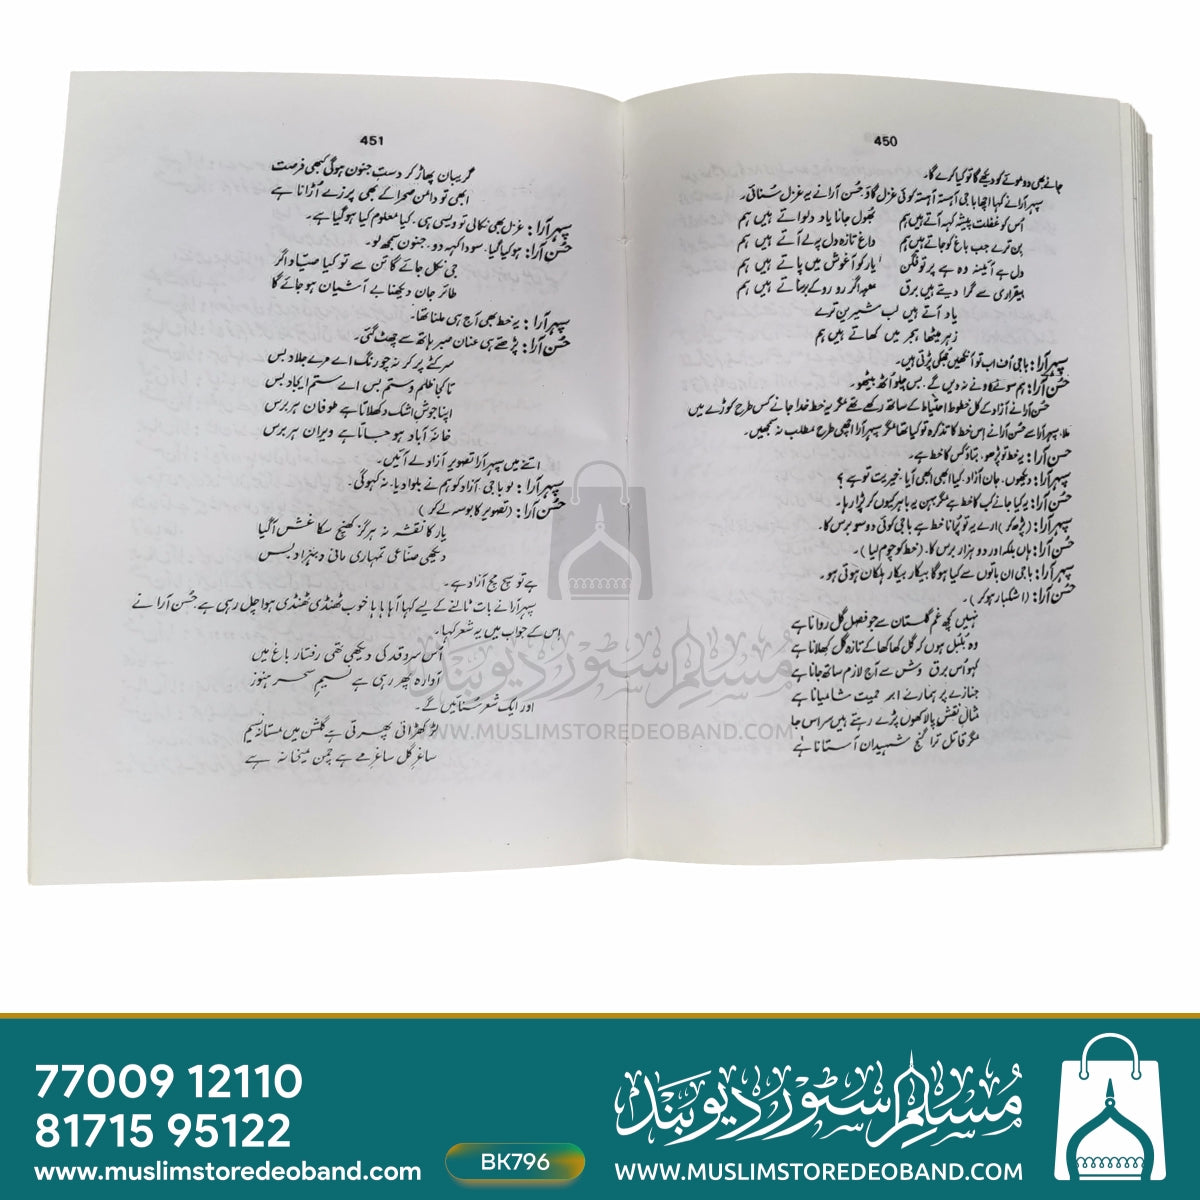 450
جانے بھی دو موئے کو دیکھے گا تو کیا کرے گا۔
سپہر آرا نے کہا اچھا باجی آہستہ آہستہ کوئی غزل گاؤ حُسن آرا نے یہ غزل سُنائی۔
اُس کو غفلت پیشہ کہہ آتے ہیں ہم بھُول جانا یاد دلواتے ہیں ہم
بِن ترے جب باغ کو جاتے ہیں ہم داغ تازہ دل پہ لے آتے ہیں ہم
دل ہے آئینہ وہ ہے پر تو فگن یار کو آغوش میں پاتے ہیں ہم
بیقراری سے گرا دیتے ہیں برق ابر کو رو رو کے برساتے ہیں ہم
یاد آتے ہیں لب شیریں ترے
زہر میٹھا ہجر میں کھاتے ہیں ہم
سپہر آرا: باجی اُف اب تو آنکھیں جھکی پڑتی ہیں۔
حُسن آرا: ہم سونے کا ونے نہ دیں گے۔ بس چلو اُٹھ بیٹھو۔
حُسن آرا نے آزاد کے کل خطوط احتیاط کے ساتھ رکھے تھے مگر یہ خط خدا جانے کس طرح کوڑے میں
ملا۔ سپہر آرا سے حُسن آرا نے اِس خط کا تذکرہ تو کیا تھا مگر سپہر آرا اچھی طرح مطلب نہ سمجھیں۔
حسن آرا: یہ خط تو پڑھو۔ بتاؤ کس کا خط ہے۔
سپہر آرا: دیکھوں۔ جان آزاد۔ کیا ابھی ابھی آیا۔ خیریت تو ہے؟
حُسن آرا: یہ کیا جانے کب کا خط ہے مگر بہن یہ باہر کیوں کر پڑا رہا۔
سپہر آرا: (پڑھ کر) ارے یہ تو پُرانا خط ہے باجی کوئی دو سو برس کا۔
حُسن آرا: ہاں بلکہ اور دو ہزار برس کا۔ (خط کو چوم لیا)۔
سپہر آرا: باجی ان باتوں سے کیا ہوگا بیکار بیکار ہلکان ہوتی ہو۔
حُسن آرا: (اشکبار ہوکر)۔
نہیں کچھ غم گلستاں سے جو فصل گل روانا ہے
وہ بلبل ہوں کہ گل کھا کھا کے تازہ گل کھلانا ہے
کہو اُس برق وش سے آج لازم ساتھ جانا ہے
جنازے پر ہمارے ابر حمیت شامیانا ہے
مثال نقش پا لاکھوں پڑے رہتے ہیں سر اس جا
مگر قاتل ترا گنج شہیداں آستانا ہے
451
گریباں پھاڑ کر دست جنوں ہوگی کبھی فرصت
ابھی تو دامن صحرا کے بھی پرزے اُڑانا ہے
سپہر آرا: غزل بھی نکالی تو ویسی ہی۔ کیا معلوم کیا ہوگیا ہے۔
حُسن آرا: ہو کیا گیا۔ سودا کہہ دو۔ جنون سمجھ لو۔
جی نکل جائے گا تن سے تو کیا صیّاد اگر
طائر جاں دیکھنا بے آشیاں ہوجائے گا
سپہر آرا: یہ خط بھی آج ہی ملنا تھا۔
حُسن آرا: پڑھتے ہی عنان صبر ہاتھ سے چھٹ گئی۔
سرکٹے پر کر نہ چورنگ اے مرے جلاد بس
تا کجا ظلم و ستم بس اے ستم ایجاد بس
اپنا جوش اشک دکھلاتا ہے طوفاں ہر برس
خانۂ آباد ہو جاتا ہے ویراں ہر برس
اتنے میں سپہر آرا تصویر آزاد لے آئیں۔
سپہر آرا: لو باجی۔ آزاد کو ہم نے بلوا دیا۔ نہ کہوگی۔
حُسن آرا: (تصویر کا بوسہ لے کر)
یار کا نقشہ نہ ہرگز کھنچ سکا غش آگیا
دیکھی صنّاعی تمہاری مانی و بہزاد بس
ہے تو سچ مچ آزاد ہے۔
سپہر آرا نے بات ٹالنے کے لیے کہا آہا ہا ہا خوب ٹھنڈی ٹھنڈی ہوا چل رہی ہے۔ حُسن آرا نے
اِس کے جواب میں یہ شعر کہا۔
اُس سرو قد کی دیکھی تھی رفتار باغ میں
آوارہ پھر رہی ہے نسیم سحر ہنوز
اور ایک شعر سُنائیں گے۔
لڑکھڑاتی پھرتی ہے گلشن میں مستانہ نسیم
ساغر گل ساغر مے ہے چمن میخانہ ہے
مسلم سٹور دیوبند
WWW.MUSLIMSTOREDEOBAND.COM
77009 12110
81715 95122
www.muslimstoredeoband.com
BK796
مسلم سٹور دیوبند
WWW.MUSLIMSTOREDEOBAND.COM